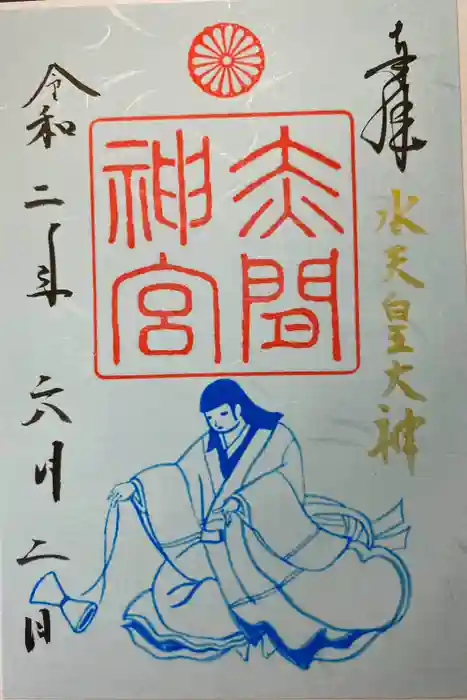 奉拝
水天皇大神
赤間
神宮
令和二年六月二日